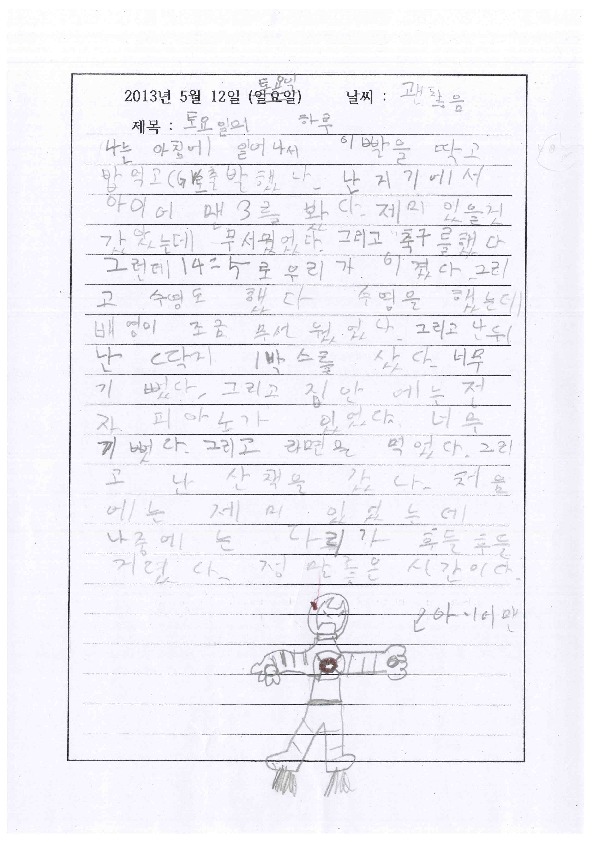 토요일
2013년 5월 12일 (일요일) 날씨 : 괜찮음
제목 : 토요일의 하루
나는 아침에 일어나서 이빨을 딱고
밥먹고 출발했다. 난
아이어맨3를 봤다. 제미있을건
같았는데 무서웠었다. 그리고 축구를했다
그런데 14=5로 우리가 이겼다 그리
고 수영도 했다 수영을 했는데
배영이 조금 무서웠었다. 그리고 난 뒤
난 딱지 1박스를 샀다. 너무
기뻤다. 그리고 집안에는 전
자 피아노가 있었다. 너무
기뻣다. 그리고 라면을 먹었다. 그리
고 난 산책을 갔다. 처음
에는 제미있었는데
나중에는 다리가 후들후들
저렸다. 정말좋은 시간이다.
아이어맨